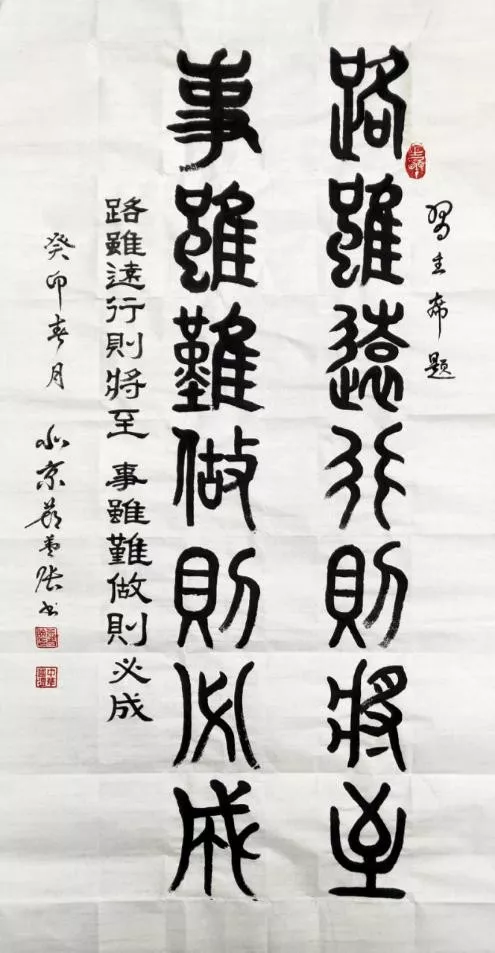 習主席题
路雖遠行則將至
事雖難做則必成
路雖遠行則將至 事雖難做則必成
癸卯春月
北京